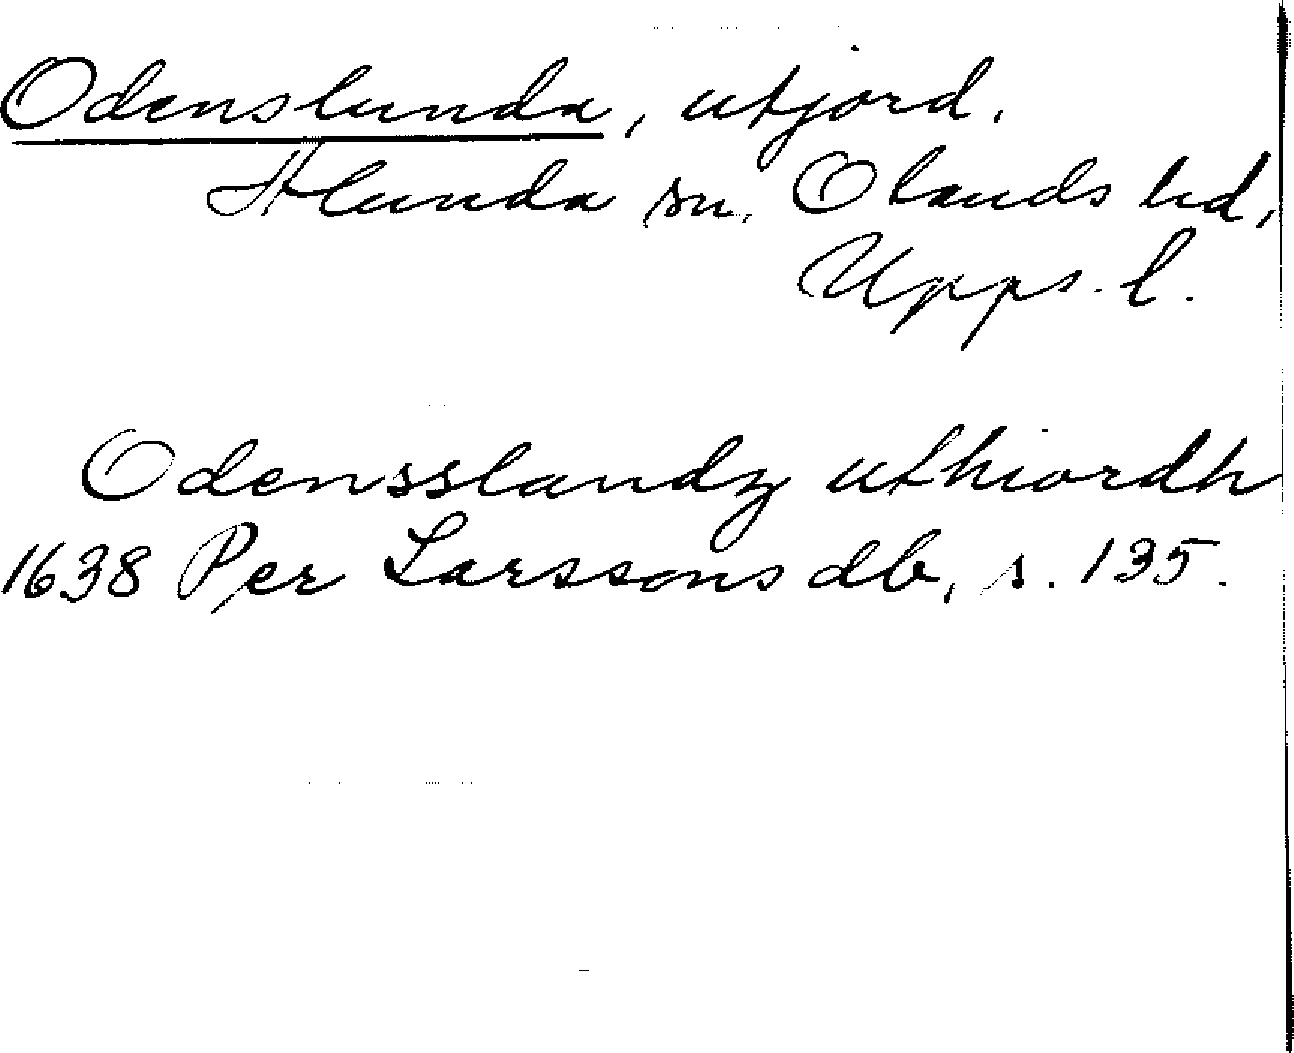 Odenslunda, utjord.
Alunda sn, Olands hd,
Upps. l.
Odensslandz uthiordh
1638 Per Larssons db, s. 135.